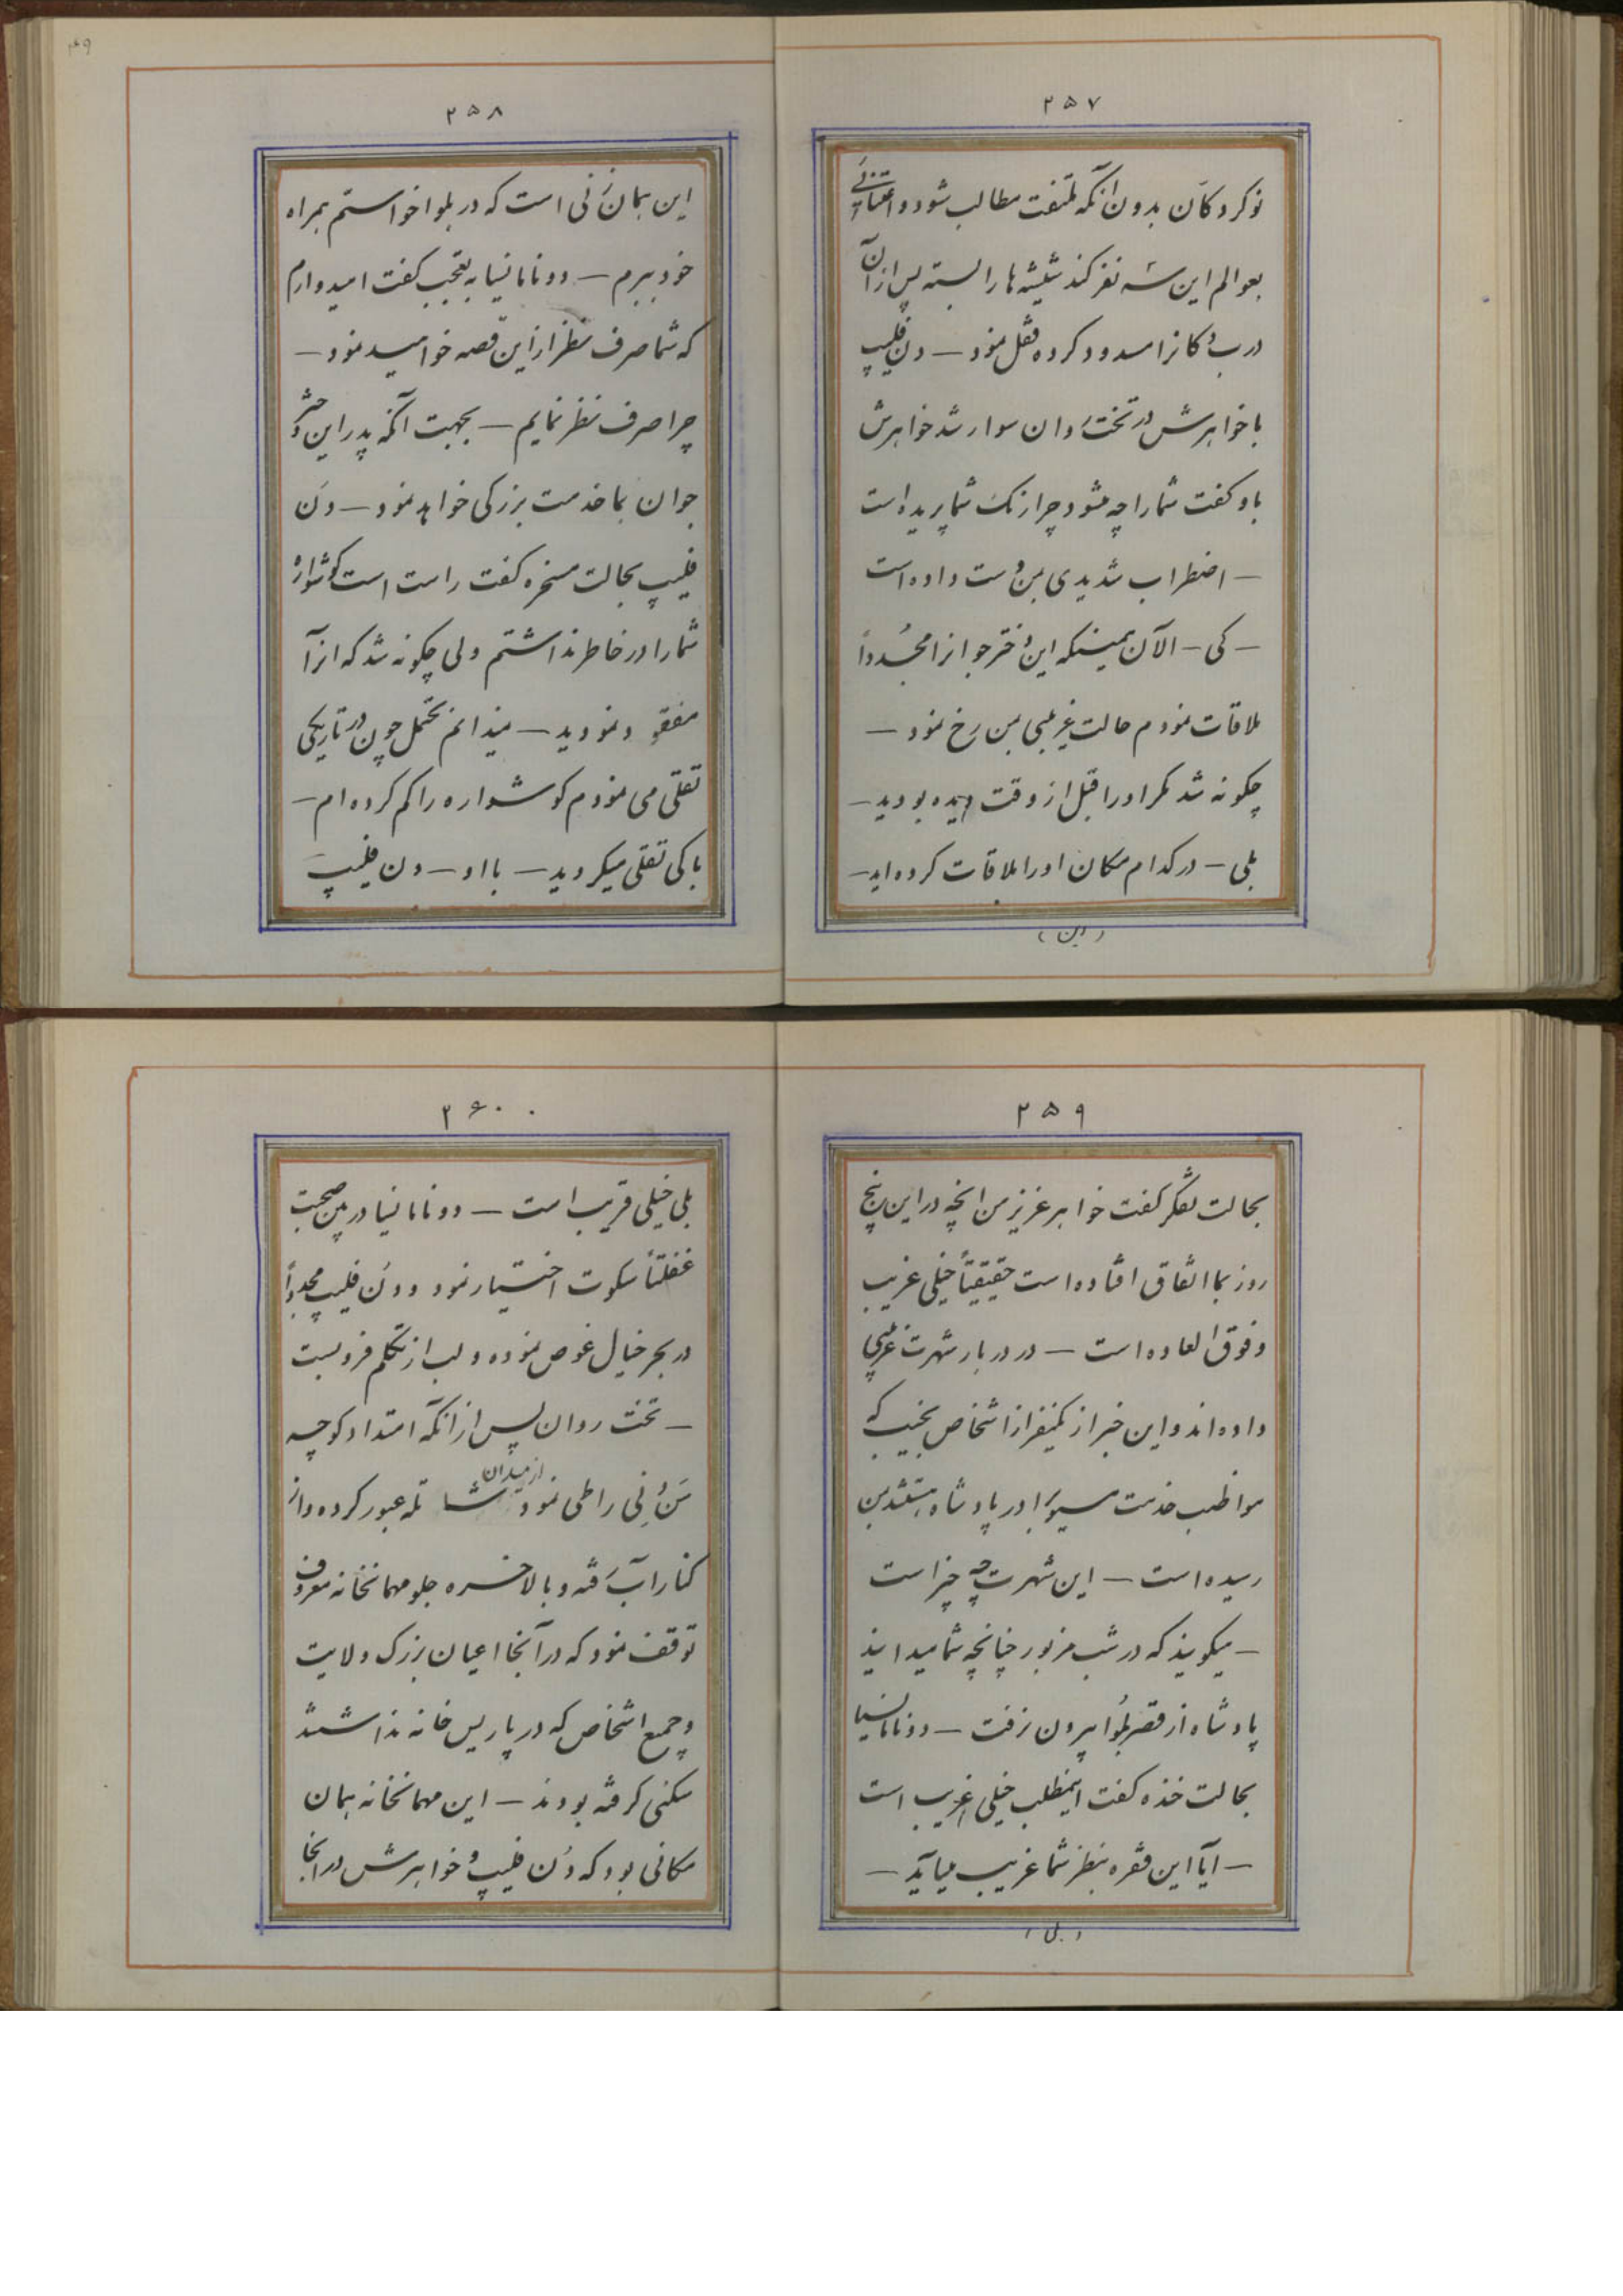 ۲۵۷
نوکر دکان بدون آنکه ملتفت مطالب شود و اعتنائی
بعوالم این سه نفر کند شیشه ها را بسته پس از آن
درب دکانرا مسدود کرده قفل نمود — دن فلیپ
با خواهرش در تخت روان سوار شد خواهرش
باو گفت شما را چه میشود چرا رنگ شما پریده است
— اضطراب شدیدی بمن دست داده است
— کی — الآن همینکه این دختر جوانرا مجدداً
ملاقات نمودم حالت غریبی بمن رخ نمود —
چگونه شد مگر او را قبل از وقت دیده بودید —
بلی — در کدام مکان او را ملاقات کرده اید —
(این)
۲۵۸
این همان زنی است که در بلوا خواستم بمراه
خود ببرم — دونا مانسیا به تعجب گفت امیدوارم
که شما صرف نظر از این قصه خواهید نمود —
چرا صرف نظر نمایم — بجهت آنکه پدر این دختر
جوان بما خدمت بزرگی خواهد نمود — دن
فلیپ بحالت مسخره گفت راست است گوشواره
شما را در خاطر نداشتم ولی چگونه شد که آنرا
مفقود نمودید — نمیدانم محتمل چون در تاریکی
تقلی می نمودم گوشواره را گم کرده ام —
با کی تقلی میکردید — با او — دن فلیپ
۲۵۹
بحالت تفکر گفت خواهر عزیز من آنچه در این پنج
روز بما اتفاق افتاده است حقیقتاً خیلی غریب
و فوق العاده است — در دربار شهرت غریبی
داده اند و این خبر از یکنفر از اشخاص نجیب که
مواظب خدمت مسیو برادر پادشاه هستند بمن
رسیده است — این شهرت چه چیز است
— میگویند که در شب مزبور چنانچه شما میدانید
پادشاه از قصر بلوا بیرون نرفت — دونا مانسیا
بحالت خنده گفت اینمطلب خیلی غریب است
— آیا این فقره بنظر شما غریب میآید —
(بلی)
۲۶۰
بلی خیلی قریب است — دونا مانسیا در بین صحبت
غفلتاً سکوت اختیار نمود و دن فلیپ مجدداً
در بحر خیال غوص نموده و لب از تکلم فرو بست
— تخت روان پس از آنکه امتداد کوچه
سن دنی را طی نمود از میدان شاتله عبور کرده و از
کنار آب رفته و بالاخره جلو مهمانخانه معروف
توقف نمود که در آنجا اعیان بزرگ ولایت
و جمیع اشخاص که در پاریس خانه نداشتند
سکنی گرفته بودند — این مهمانخانه همان
مکانی بود که دن فلیپ و خواهرش در آنجا